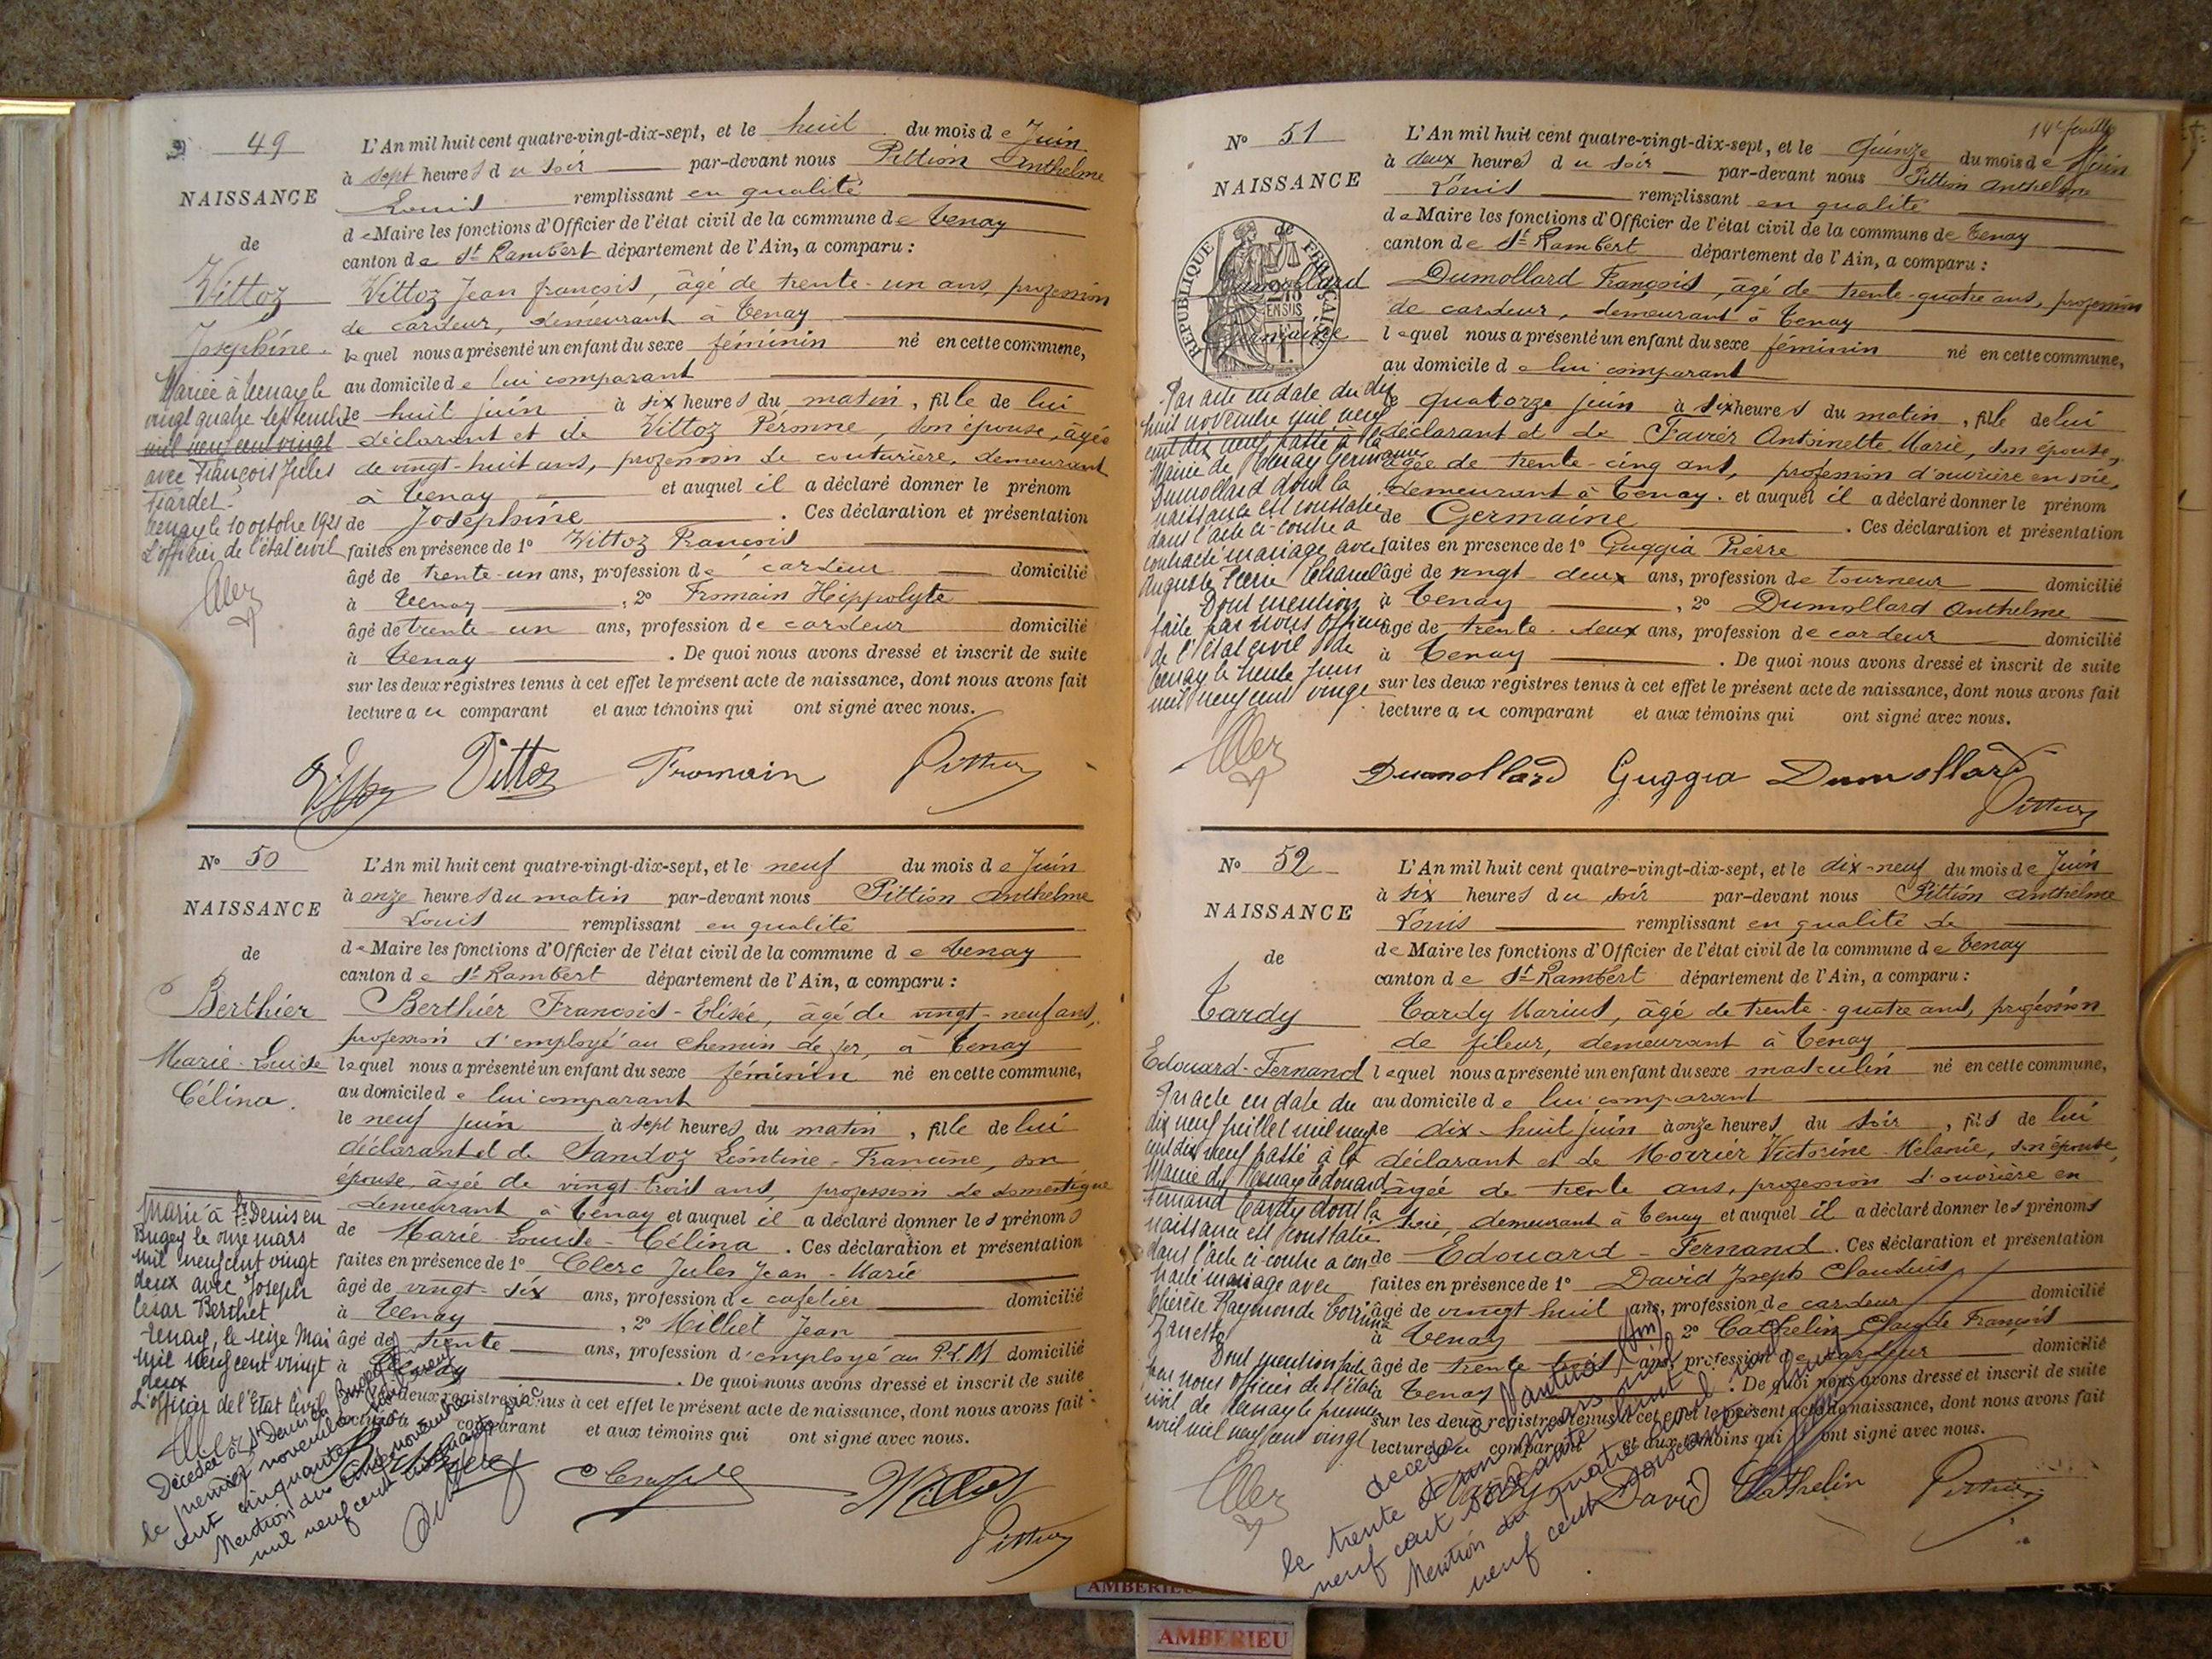 49
NAISSANCE
de
Vittoz
Joséphine.
Mariée à Tenay le
vingt quatre septembre
mil neuf cent vingt
avec François Jules
Tenay le 10 octobre 1921
L'officier de l'état civil
L'An mil huit cent quatre-vingt-dix-sept, et le huit du mois de Juin
à sept heures du soir par-devant nous Pittion Anthelme
Louis remplissant en qualité
de Maire les fonctions d'Officier de l'état civil de la commune de Tenay
canton de St Rambert département de l'Ain, a comparu :
Vittoz Jean françois, âgé de trente-un ans, profession
de cardeur, demeurant à Tenay
lequel nous a présenté un enfant du sexe féminin né en cette commune,
au domicile de lui comparant
le huit juin à six heures du matin, fille de lui
déclarant et de Vittoz Péronne, son épouse, âgée
de vingt-huit ans, profession de couturière, demeurant
à Tenay et auquel il a déclaré donner le prénom
de Joséphine. Ces déclaration et présentation
faites en présence de 1° Vittoz François
âgé de trente-un ans, profession de cardeur domicilié
à Tenay, 2° Fromain Hippolyte
âgé de trente-un ans, profession de cardeur domicilié
à Tenay. De quoi nous avons dressé et inscrit de suite
sur les deux registres tenus à cet effet le présent acte de naissance, dont nous avons fait
lecture au comparant et aux témoins qui ont signé avec nous.
Vittoz Fromain Pittion
N° 50
NAISSANCE
de
Berthier
Marie-Louise
Célina.
Marié à St Denis en
Bugey le onze mars
mil neuf cent vingt
deux avec Joseph
César Berthet
Tenay, le seize Mai
mil neuf cent vingt
deux
L'officier de l'Etat Civil
Décédée à St Denis en Bugey
le premier novembre mil neuf
cent cinquante
Mention du cinq novembre
mil neuf cent cinquante
L'An mil huit cent quatre-vingt-dix-sept, et le neuf du mois de Juin
à onze heures du matin par-devant nous Pittion Anthelme
Louis remplissant en qualité
de Maire les fonctions d'Officier de l'état civil de la commune de Tenay
canton de St Rambert département de l'Ain, a comparu :
Berthier François-Elisée, âgé de vingt-neuf ans,
profession d'employé au chemin de fer, à Tenay
lequel nous a présenté un enfant du sexe féminin né en cette commune,
au domicile de lui comparant
le neuf juin à sept heures du matin, fille de lui
déclarant et de Sandoz Léontine-Francine, son
épouse, âgée de vingt-trois ans, profession de domestique
demeurant à Tenay et auquel il a déclaré donner les prénoms
de Marie-Louise-Célina. Ces déclaration et présentation
faites en présence de 1° Clerc Jules Jean-Marie
âgé de vingt-six ans, profession de cafetier domicilié
à Tenay, 2° Milliet Jean
âgé de trente ans, profession d'employé au P.L.M domicilié
à Tenay. De quoi nous avons dressé et inscrit de suite
sur les deux registres tenus à cet effet le présent acte de naissance, dont nous avons fait
lecture au comparant et aux témoins qui ont signé avec nous.
Pittion
14e feuille
N° 51
NAISSANCE
de
RÉPUBLIQUE FRANÇAISE
Dumollard
Germaine
Par acte en date du dix
huit novembre mil neuf
cent dix neuf passé à la
Mairie de Tenay Germaine
Dumollard dont la
naissance est constatée
dans l'acte ci-contre a
contracté mariage avec
Dont mention
faite par nous officier
de l'état civil de
Tenay le trente juin
mil neuf cent vingt.
L'An mil huit cent quatre-vingt-dix-sept, et le Quinze du mois de Juin
à deux heures du soir par-devant nous Pittion Anthelme
Louis remplissant en qualité
de Maire les fonctions d'Officier de l'état civil de la commune de Tenay
canton de St Rambert département de l'Ain, a comparu :
Dumollard François, âgé de trente-quatre ans, profession
de cardeur, demeurant à Tenay
lequel nous a présenté un enfant du sexe féminin né en cette commune,
au domicile de lui comparant
le quatorze juin à six heures du matin, fille de lui
déclarant et de Favier Antoinette Marie, son épouse,
âgée de trente-cinq ans, profession d'ouvrière en soie,
demeurant à Tenay. et auquel il a déclaré donner le prénom
de Germaine. Ces déclaration et présentation
faites en présence de 1° Guggia Pierre
âgé de vingt-deux ans, profession de tourneur domicilié
à Tenay, 2° Dumollard Anthelme
âgé de trente-deux ans, profession de cardeur domicilié
à Tenay. De quoi nous avons dressé et inscrit de suite
sur les deux registres tenus à cet effet le présent acte de naissance, dont nous avons fait
lecture au comparant et aux témoins qui ont signé avec nous.
Dumollard Guggia Dumollard
Pittion
N° 52
NAISSANCE
de
Tardy
Edouard-Fernand
Par acte en date du
dix neuf juillet mil neuf
cent dix neuf passé à la
Mairie de Tenay Edouard
Fernand Tardy dont la
naissance est constatée
dans l'acte ci-contre a con
tracté mariage avec
Zanetta
Dont mention faite
par nous officier de l'état
civil de Tenay le premier
avril mil neuf cent vingt
L'An mil huit cent quatre-vingt-dix-sept, et le dix-neuf du mois de Juin
à six heures du soir par-devant nous Pittion Anthelme
Louis remplissant en qualité de
de Maire les fonctions d'Officier de l'état civil de la commune de Tenay
canton de St Rambert département de l'Ain, a comparu :
Tardy Marius, âgé de trente-quatre ans, profession
de fileur, demeurant à Tenay
lequel nous a présenté un enfant du sexe masculin né en cette commune,
au domicile de lui comparant
le dix-huit juin à onze heures du soir, fils de lui
déclarant et de Morrier Victorine-Mélanie, son épouse,
âgée de trente ans, profession d'ouvrière en
soie, demeurant à Tenay et auquel il a déclaré donner les prénoms
de Edouard-Fernand. Ces déclaration et présentation
faites en présence de 1° David Joseph Claudius
âgé de vingt huit ans, profession de cardeur domicilié
à Tenay 2° Cathelin Claude François
âgé de trente-trois ans, profession de cardeur domicilié
à Tenay. De quoi nous avons dressé et inscrit de suite
sur les deux registres tenus à cet effet le présent acte de naissance, dont nous avons fait
lecture au comparant et aux témoins qui ont signé avec nous.
Tardy David Cathelin Pittion
décédé à Nantua (Ain)
le trente mars mil
neuf cent soixante huit
Mention du quatre avril mil
neuf cent soixante huit
AMBERIEU
AMBERIEU